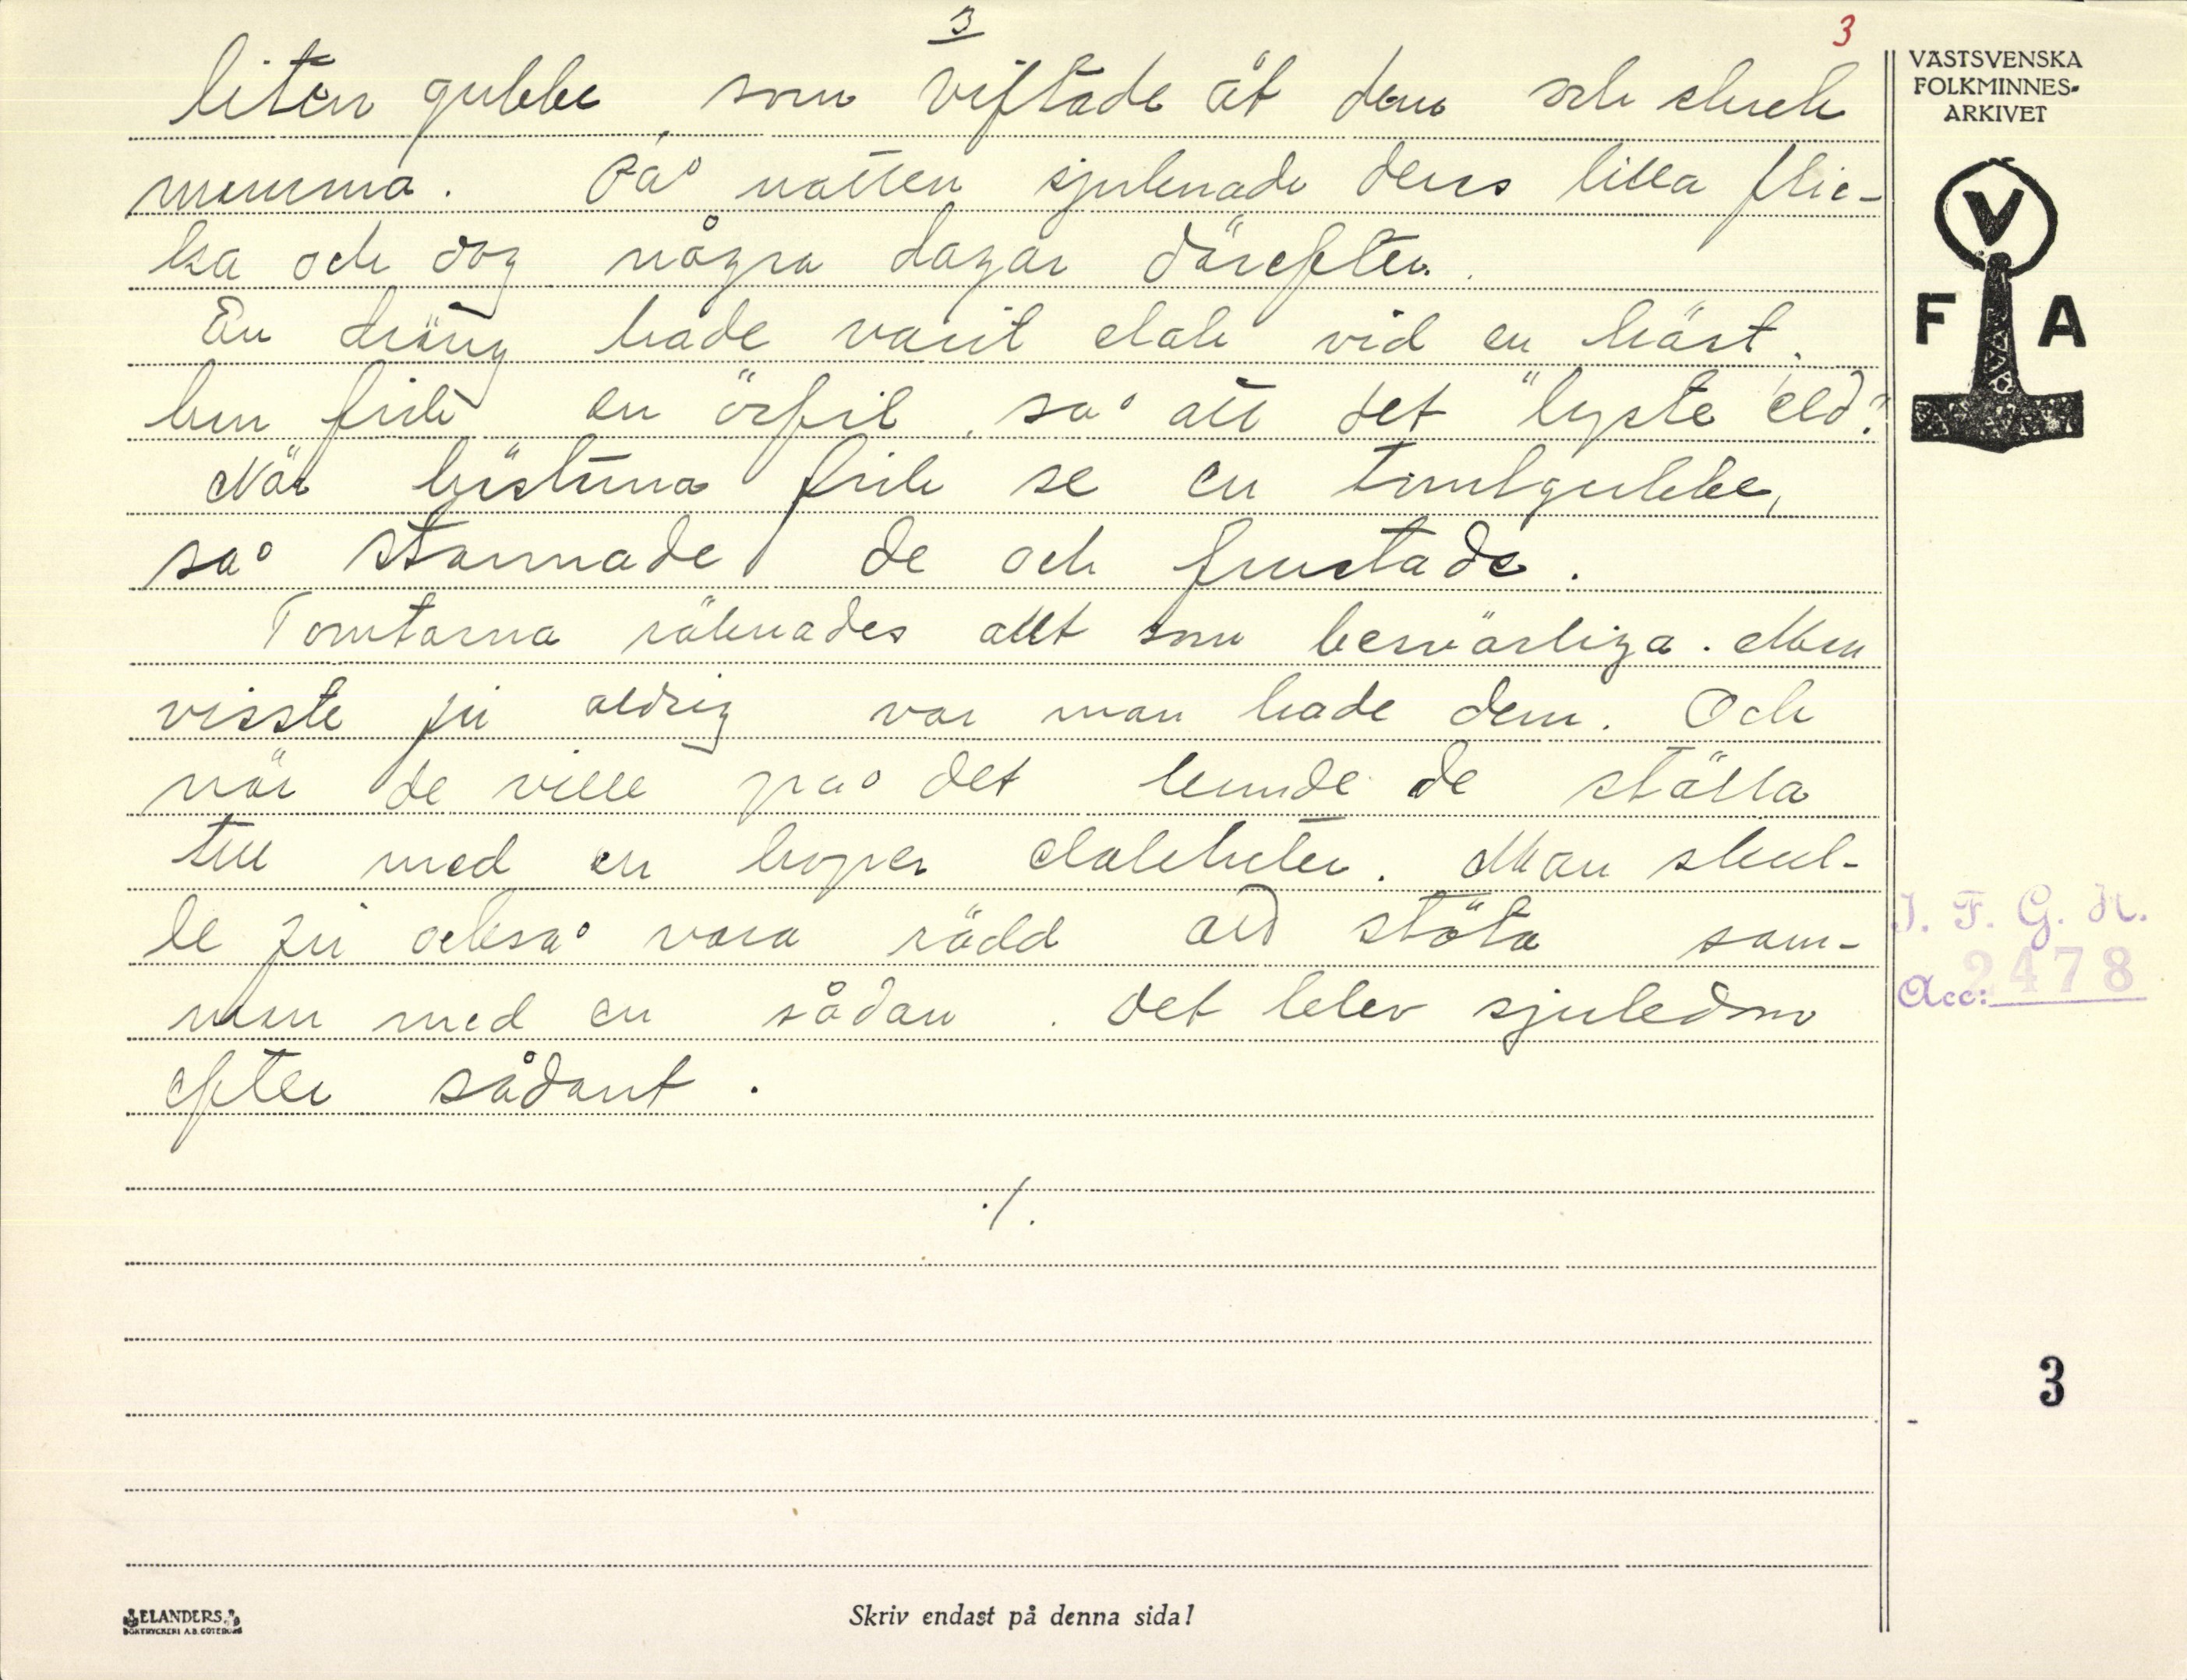 3
3
liten gubbe, som viftade åt dem och skrek
mumma. På natten sjuknade ders lilla flic-
ka och dog några dagar därefter.
En dräng hade varit elak vid en häst.
han fick en örfil, så att det "lyste eld".
När hästarna fick se en tomtgubbe,
så stannade de och frustade.
Tomtarna räknades allt som besvärliga. Man
visste ju aldrig var man hade dem. Och
när de ville på det kunde de ställa
till med en hoper elakheter. Man skul-
le ju också vara rädd att stöta sam-
man med en sådan. Det blev sjukdom
efter sådant.
./.
VÄSTSVENSKA
FOLKMINNES-
ARKIVET
V
F A
I. F. G. H.
Acc: 2478
3
ELANDERS
BOKTRYCKERI A.B. GÖTEBORG
Skriv endast på denna sida!